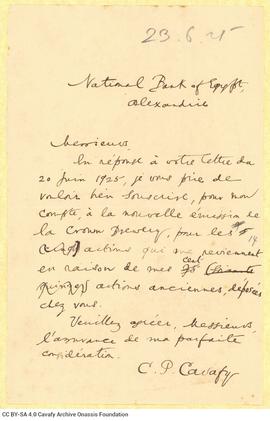 23.6.25
National Bank of Egypt,
Alexandrie
Messieurs,
En réponse à votre lettre du
20 Juin 1925, je vous prie de
vouloir bien souscrire, pour mon
compte, à la nouvelle émission de
la Crown Brewery, pour les 14
actions qui me reviennent
cent
en raison de mes
actions anciennes, déposées
chez vous.
Veuillez agréer, Messieurs,
l'assurance de ma parfaite
considération.
C. P. Cavafy
CC BY-SA 4.0 Cavafy Archive Onassis Foundation